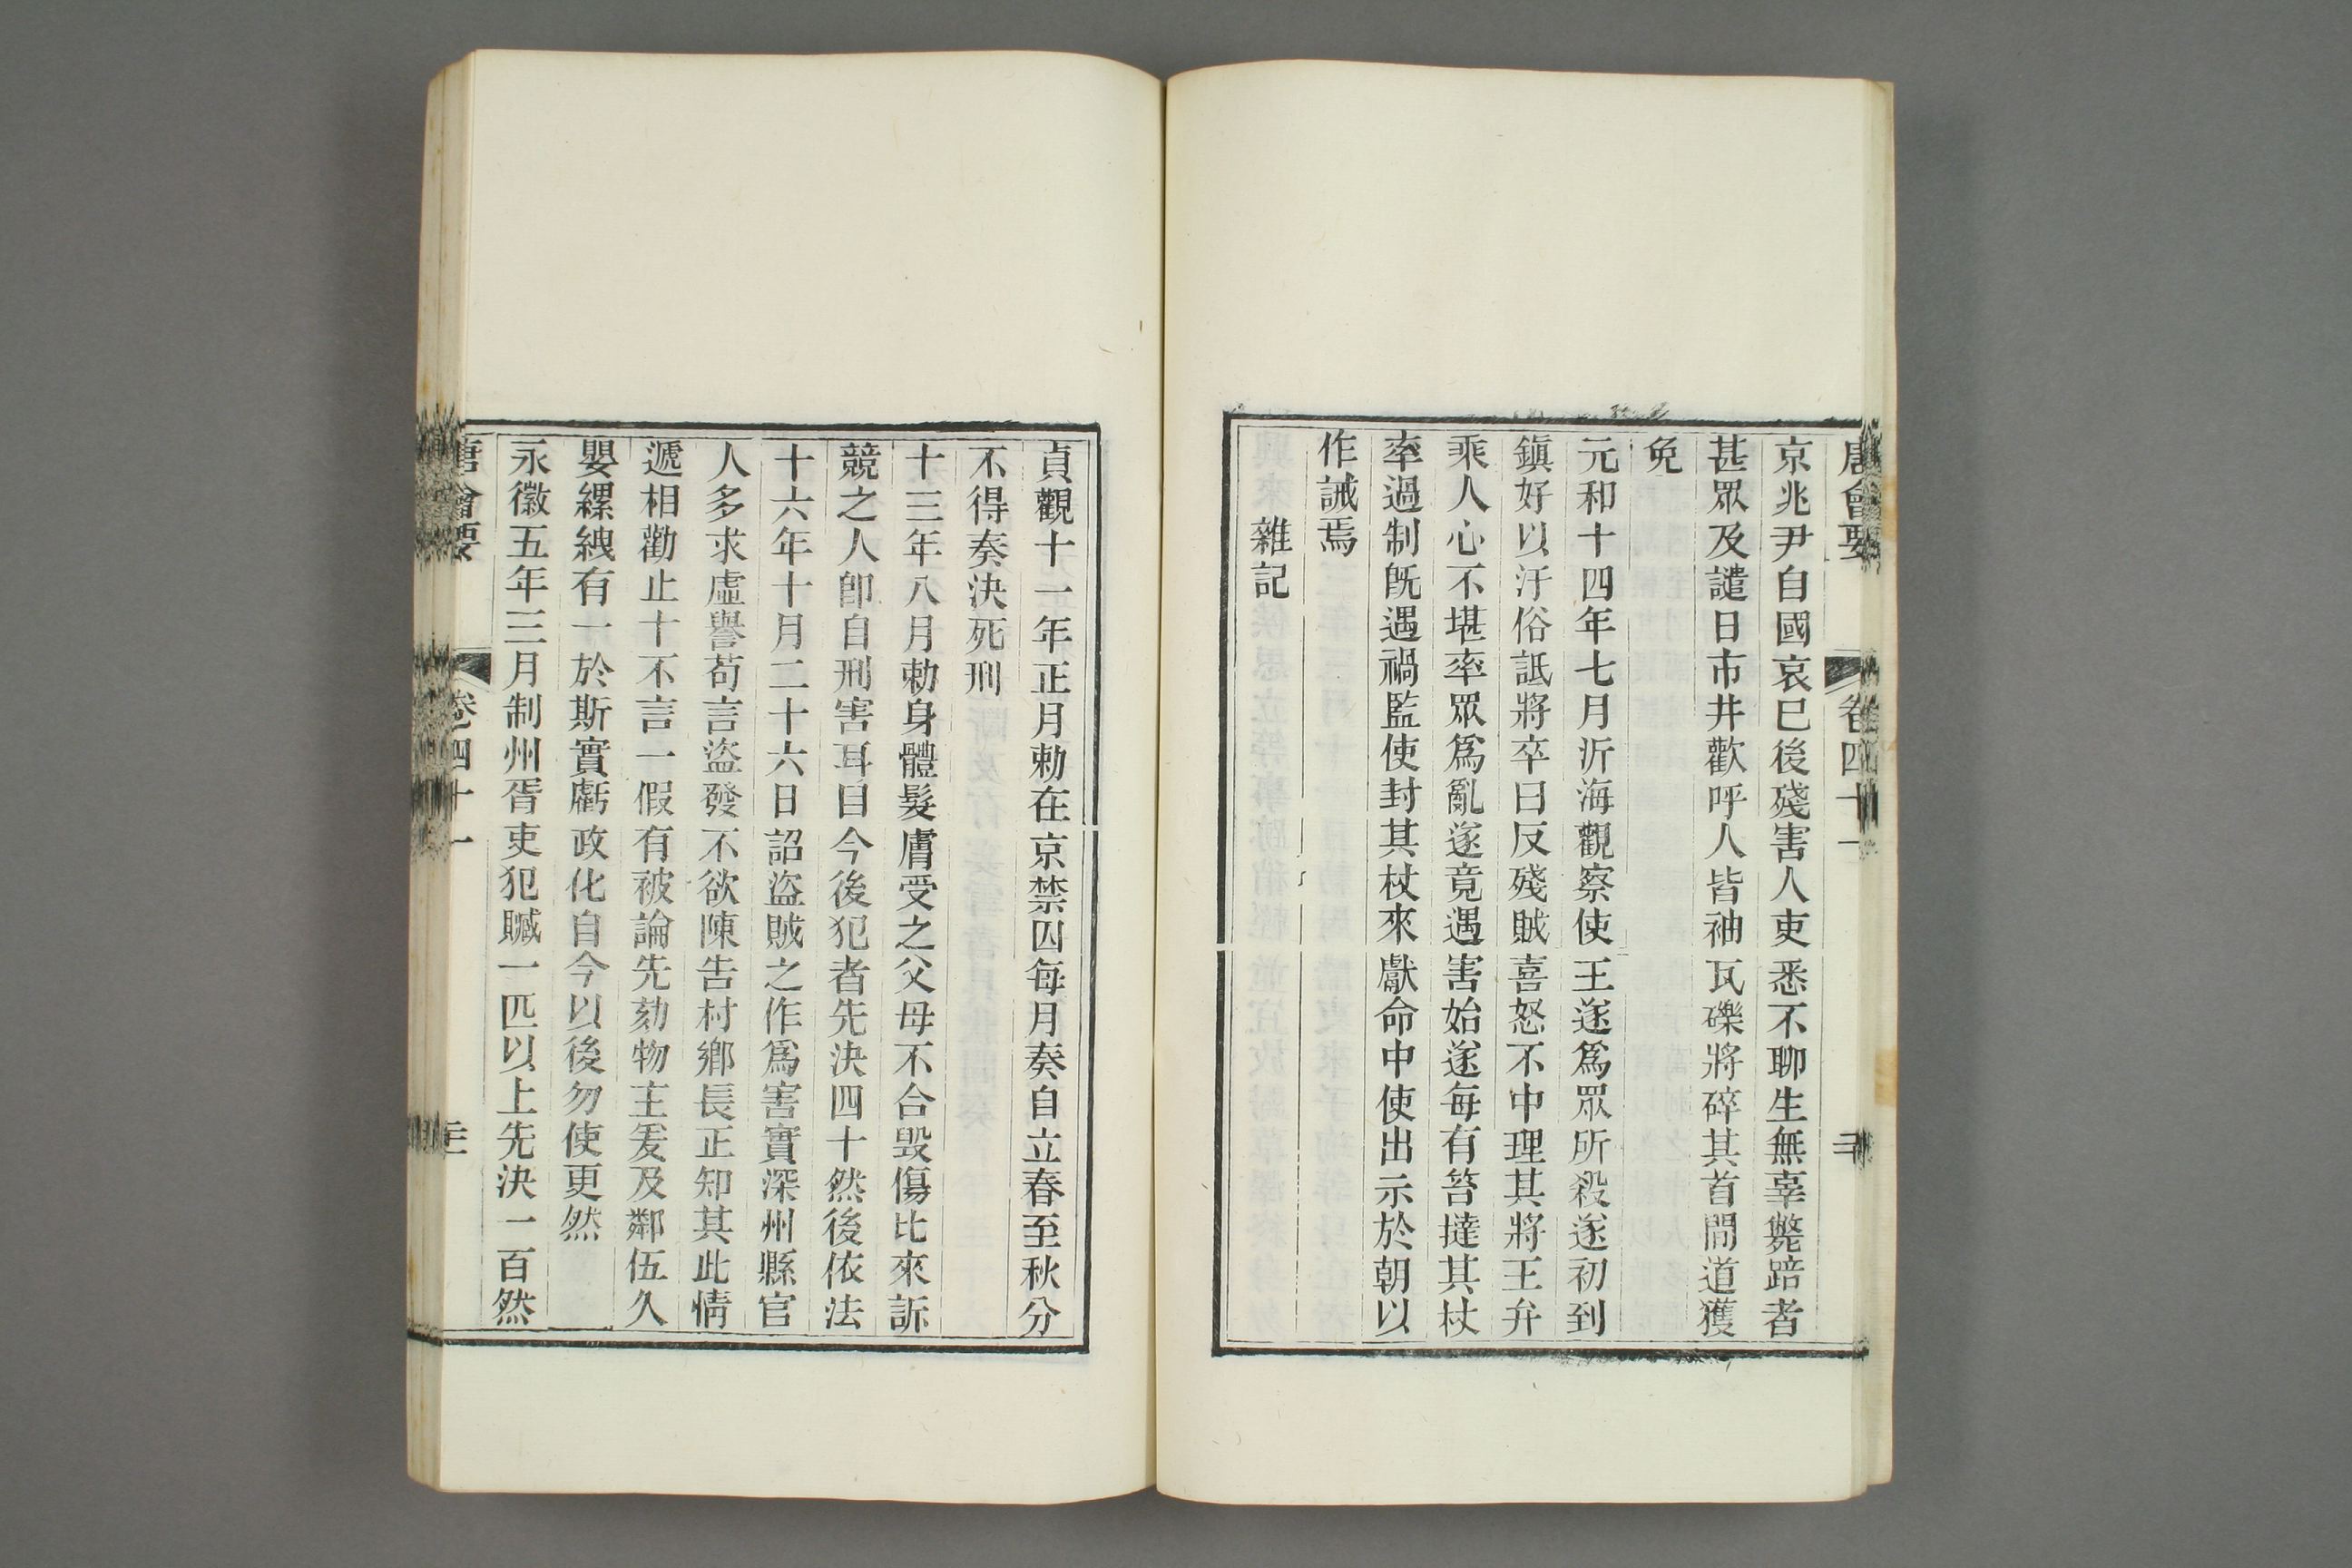 唐會要 卷四十一
京兆尹自國哀已後殘害人吏悉不聊生無辜斃踣者
甚眾及譴日市井歡呼人皆袖瓦礫將碎其首間道獲
免
元和十四年七月沂海觀察使王遂爲眾所殺遂初到
鎮好以汙俗詆將卒曰反殘賊喜怒不中理其將王弁
乘人心不堪率眾爲亂遂竟遇害始遂每有笞撻其杖
率過制旣遇禍監使封其杖來獻命中使出示於朝以
作誡焉
雜記
貞觀十一年正月勅在京禁囚每月奏自立春至秋分
不得奏決死刑
十三年八月勅身體髮膚受之父母不合毀傷比來訴
競之人卽自刑害耳目今後犯者先決四十然後依法
十六年十月二十六日詔盜賊之作爲害實深州縣官
人多求虛譽苟言盜發不欲陳告村鄉長正知其此情
遞相勸止十不言一假有被論先劾物主爰及鄰伍久
嬰縲紲有一於斯實虧政化自今以後勿使更然
永徽五年三月制州胥吏犯贓一匹以上先決一百然
唐會要 卷四十一